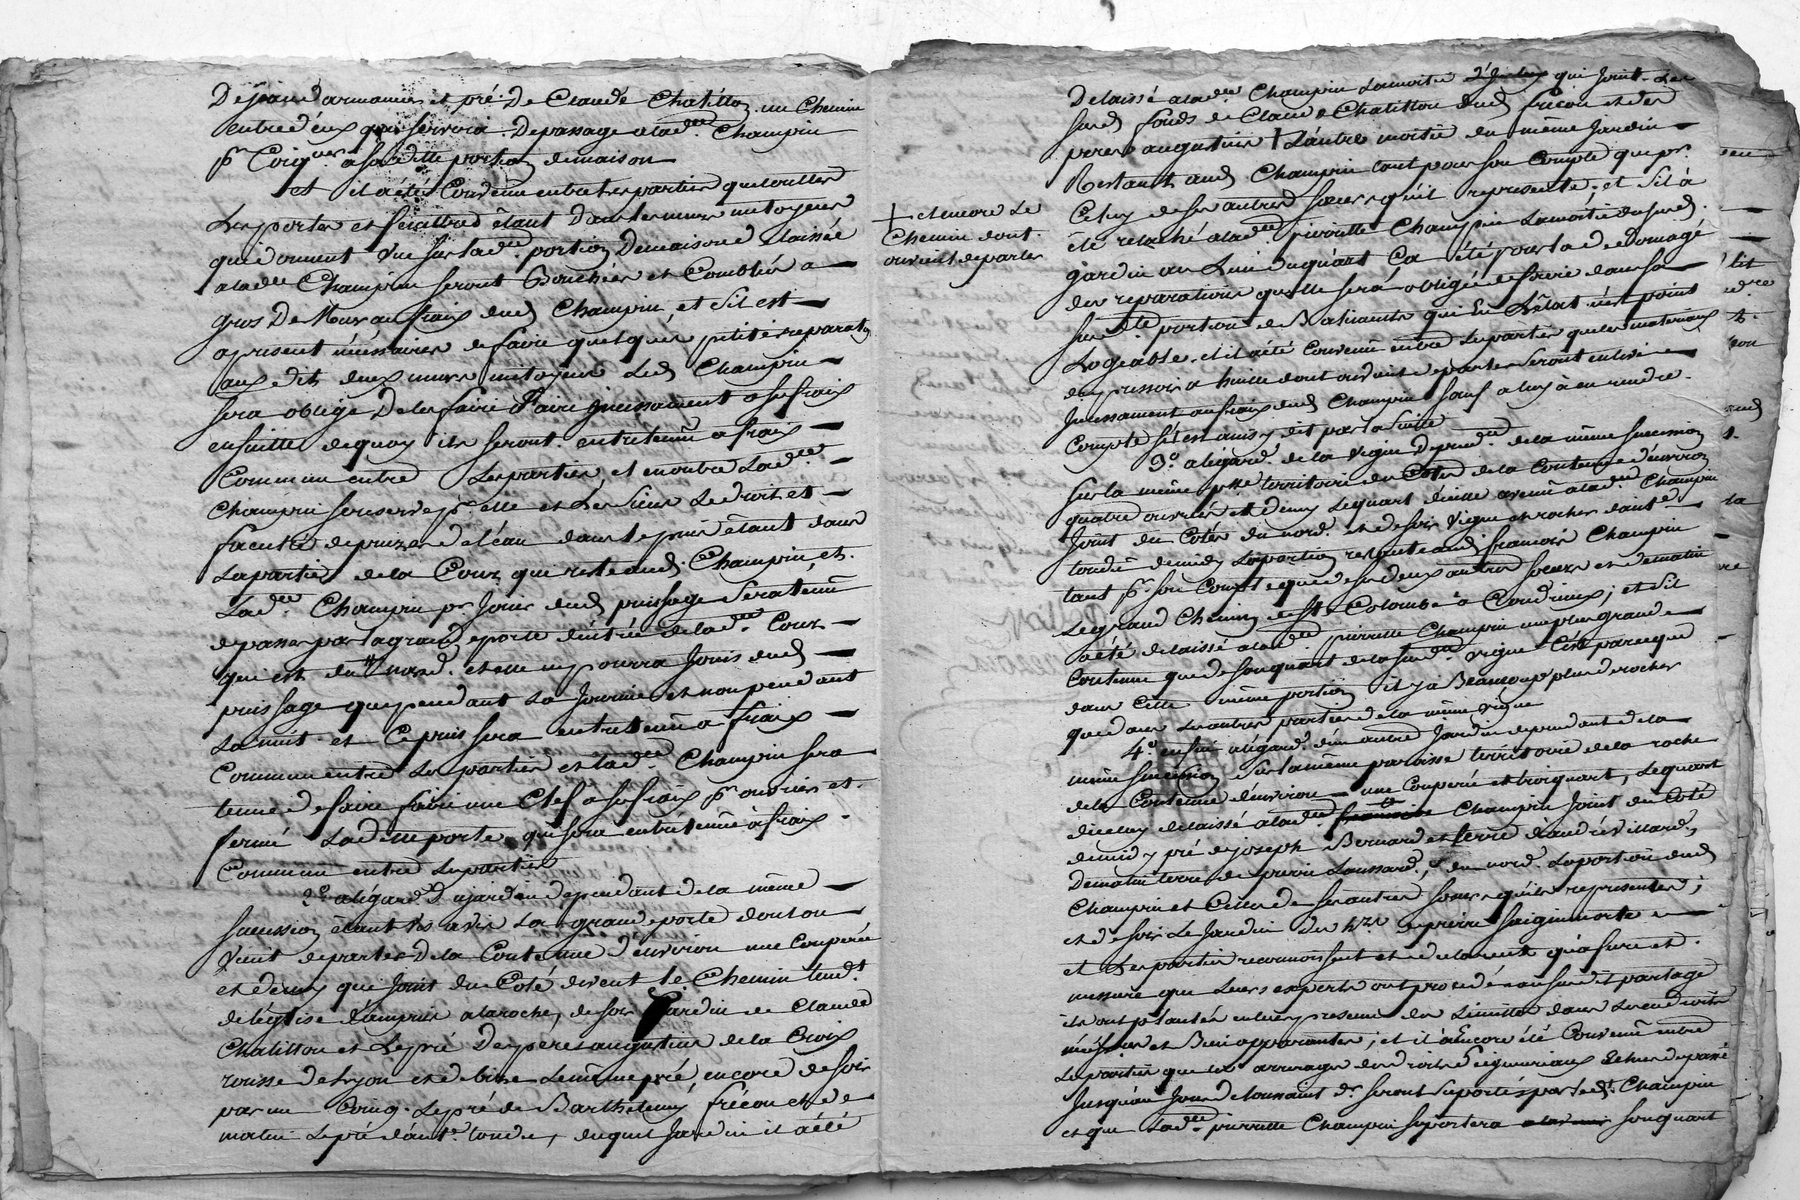 De jean darmancier et pré De Claude Chatillon un Chemin
entre d'eux qui servira De passage a lad.e Champin
pr. Coing.. a sa ditte portion demaison
et il a été Convenu entre les parties que toutes
Les portes et fenêtres étant Dans les murs mitoyens
qui donnent vue sur lad.e portion Demaison d'elaissée
a lad.e Champin seront Bouchées et Comblées a
gros De Mur au fraix dud. Champin, et s'il est
a présent nécessaires de faire quelques petites reparaõns
aux dits deux murs mitoyens Led. Champin
sera obligé De les faire faire incessament a ses fraix
ensuitte de quoy ils seront entretenu a fraix
Commun entre Les parties, et en outre Lad.e
Champin se reserve pr. elle et Les siens Le droit et
faculté de puizer de l'éau dans le puis étant dans
La partie de la Cour que reste aud. Champin, et
Lad.e Champin pr. Jouir dud. puissage sera tenu
de passer par la grande porte d'entrée de lad.e Cour
qui est du nord. et elle ny pourra Jouir dud.
puissage que pendant La Journée et non pendant
La nuit et Ce puis sera entretenu a fraix
Commun entre Les parties et lad.e Champin sera
tenue de faire faire une Clef a ses fraix pr. ouvrir et
fermé Ladette porte qui sera entretenue a fraix
Commun entre Les parties
2.o a l'égard du jardin dependant de la même
succession étant vis avis La grande porte dont on
vient de parler De la Contenue d'environ une Couperée
et demy qui Joint du Coté devent le Chemin tend.t
de l'église d'ampuis a laroche, de soir Jardin de Claude
Chatillon et Le pré Des peres augustins de la Croix
rousse de Lyon et de bize Le même pré encore de soir
par un Coing. Le pré de Barthelemy frécon et de
matin Le pré d'ant.e tonde, duquel Jardin il a été
Delaissé a lad.e Champin La moitié qui Joint Les
susd. fonds de Claude Chatillon dud. frécon et des
peres augustins L'autre moitié du même Jardin
Restant aud. Champin tant pour son Compte que pr.
Celuy de ses autres sœurs qu'il represente, et s'il à
été relaché a lad.e pierrette Champin La moitié du susd.
jardin au Lieu du quart Ca été pour la dedomagé
des reparations quelle sera obligée de faire dans sa
susd.te portion de Batiments qui En L'état n'est point
Logeable. et il a été Convenu entre Les parties que les materiaux
du pressoir a huille dont on vient de parler seront enlevé
Incessament au fraix dud. Champin sauf a luy à en rendre
Compte s'il est ainsy dit par la suitte
+ et encore Le
Chemin dont
on vient de parler
3.o a l'égard de la vigne Depend.te de la même succession
sur la même pss.e territoire du Coter de la Contenue d'environ
quatre ouvrées et Demy Le quart d'icelle avenu a lad.e Champin
Joint du Coter du nord. et de soir vigne et rocher d'ant.e
tonde demidy La portion restante aud. francois Champin
tant pr. son Compte que de ses deux autres sœurs et dematin
Le grand Chemin de St. Colombe à Condrieux; et s'il
a été delaissé a lad.e pierrette Champin une plus grande
Contenue que de son quart de la susd.e vigne C'est parceque
dans Cette même portion il y a Beaucoup plus de rocher
que dans Les autres parties de la même vigne
4.o enfin a l'égard d'un autre Jardin dependant de la
même succession sur la même paroisse territoire de la roche
de la Contenue d'environ une Couperée et troiquart, Le quart
dicelluy delaissé a lad.e Champin Joint du Coté
demidy pré de joseph Bernard et terre d'andré villard,
Dematin terre de pierre Laussard, du nord La portion dud.
Champin et Celle de ses autres sœurs qu'il represente;
et de soir Le Jardin
et Les parties reconnoissent et declarent qu'a fure et
messure que Leurs experts ont procedé au susdit partage
ils ont plantés en leur presence des Limittes dans Les endroits
et Bien apparantes; et il a encore été Convenu entre
Les parties que les arrerages des droits seigneuriaux Echus de passé
Jusqu'au Jour de toussaint dr. seront suportés par led.t Champin
et que Lad.e pierrette Champin suportera son quart